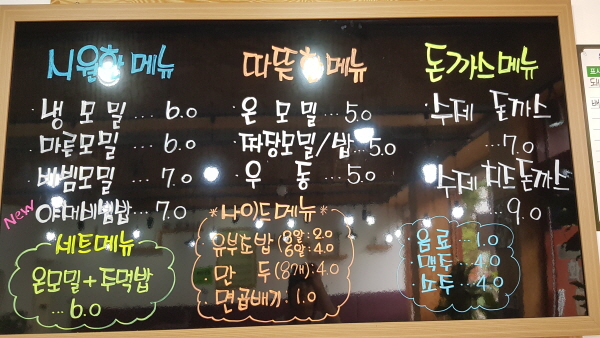 시원한 메뉴
· 냉 모 밀 ... 6.0
· 마른모밀 ... 6.0
· 비빔모밀 ... 7.0
New 야채비빔밥 ... 7.0
세트메뉴
온모밀 + 주먹밥
... 6.0
따뜻한 메뉴
· 온 모 밀 ... 5.0
· 짜당모밀/밥 ... 5.0
· 우 동 ... 5.0
*사이드메뉴*
· 유부초밥 (3알:2.0
6알:4.0
· 만 두 (8개):4.0
· 면곱배기 . 1.0
돈까스메뉴
· 수제 돈까스
... 7.0
· 수제 치즈돈까스
... 9.0
· 음료 ... 1.0
· 맥주 ... 4.0
· 소주 ... 4.0